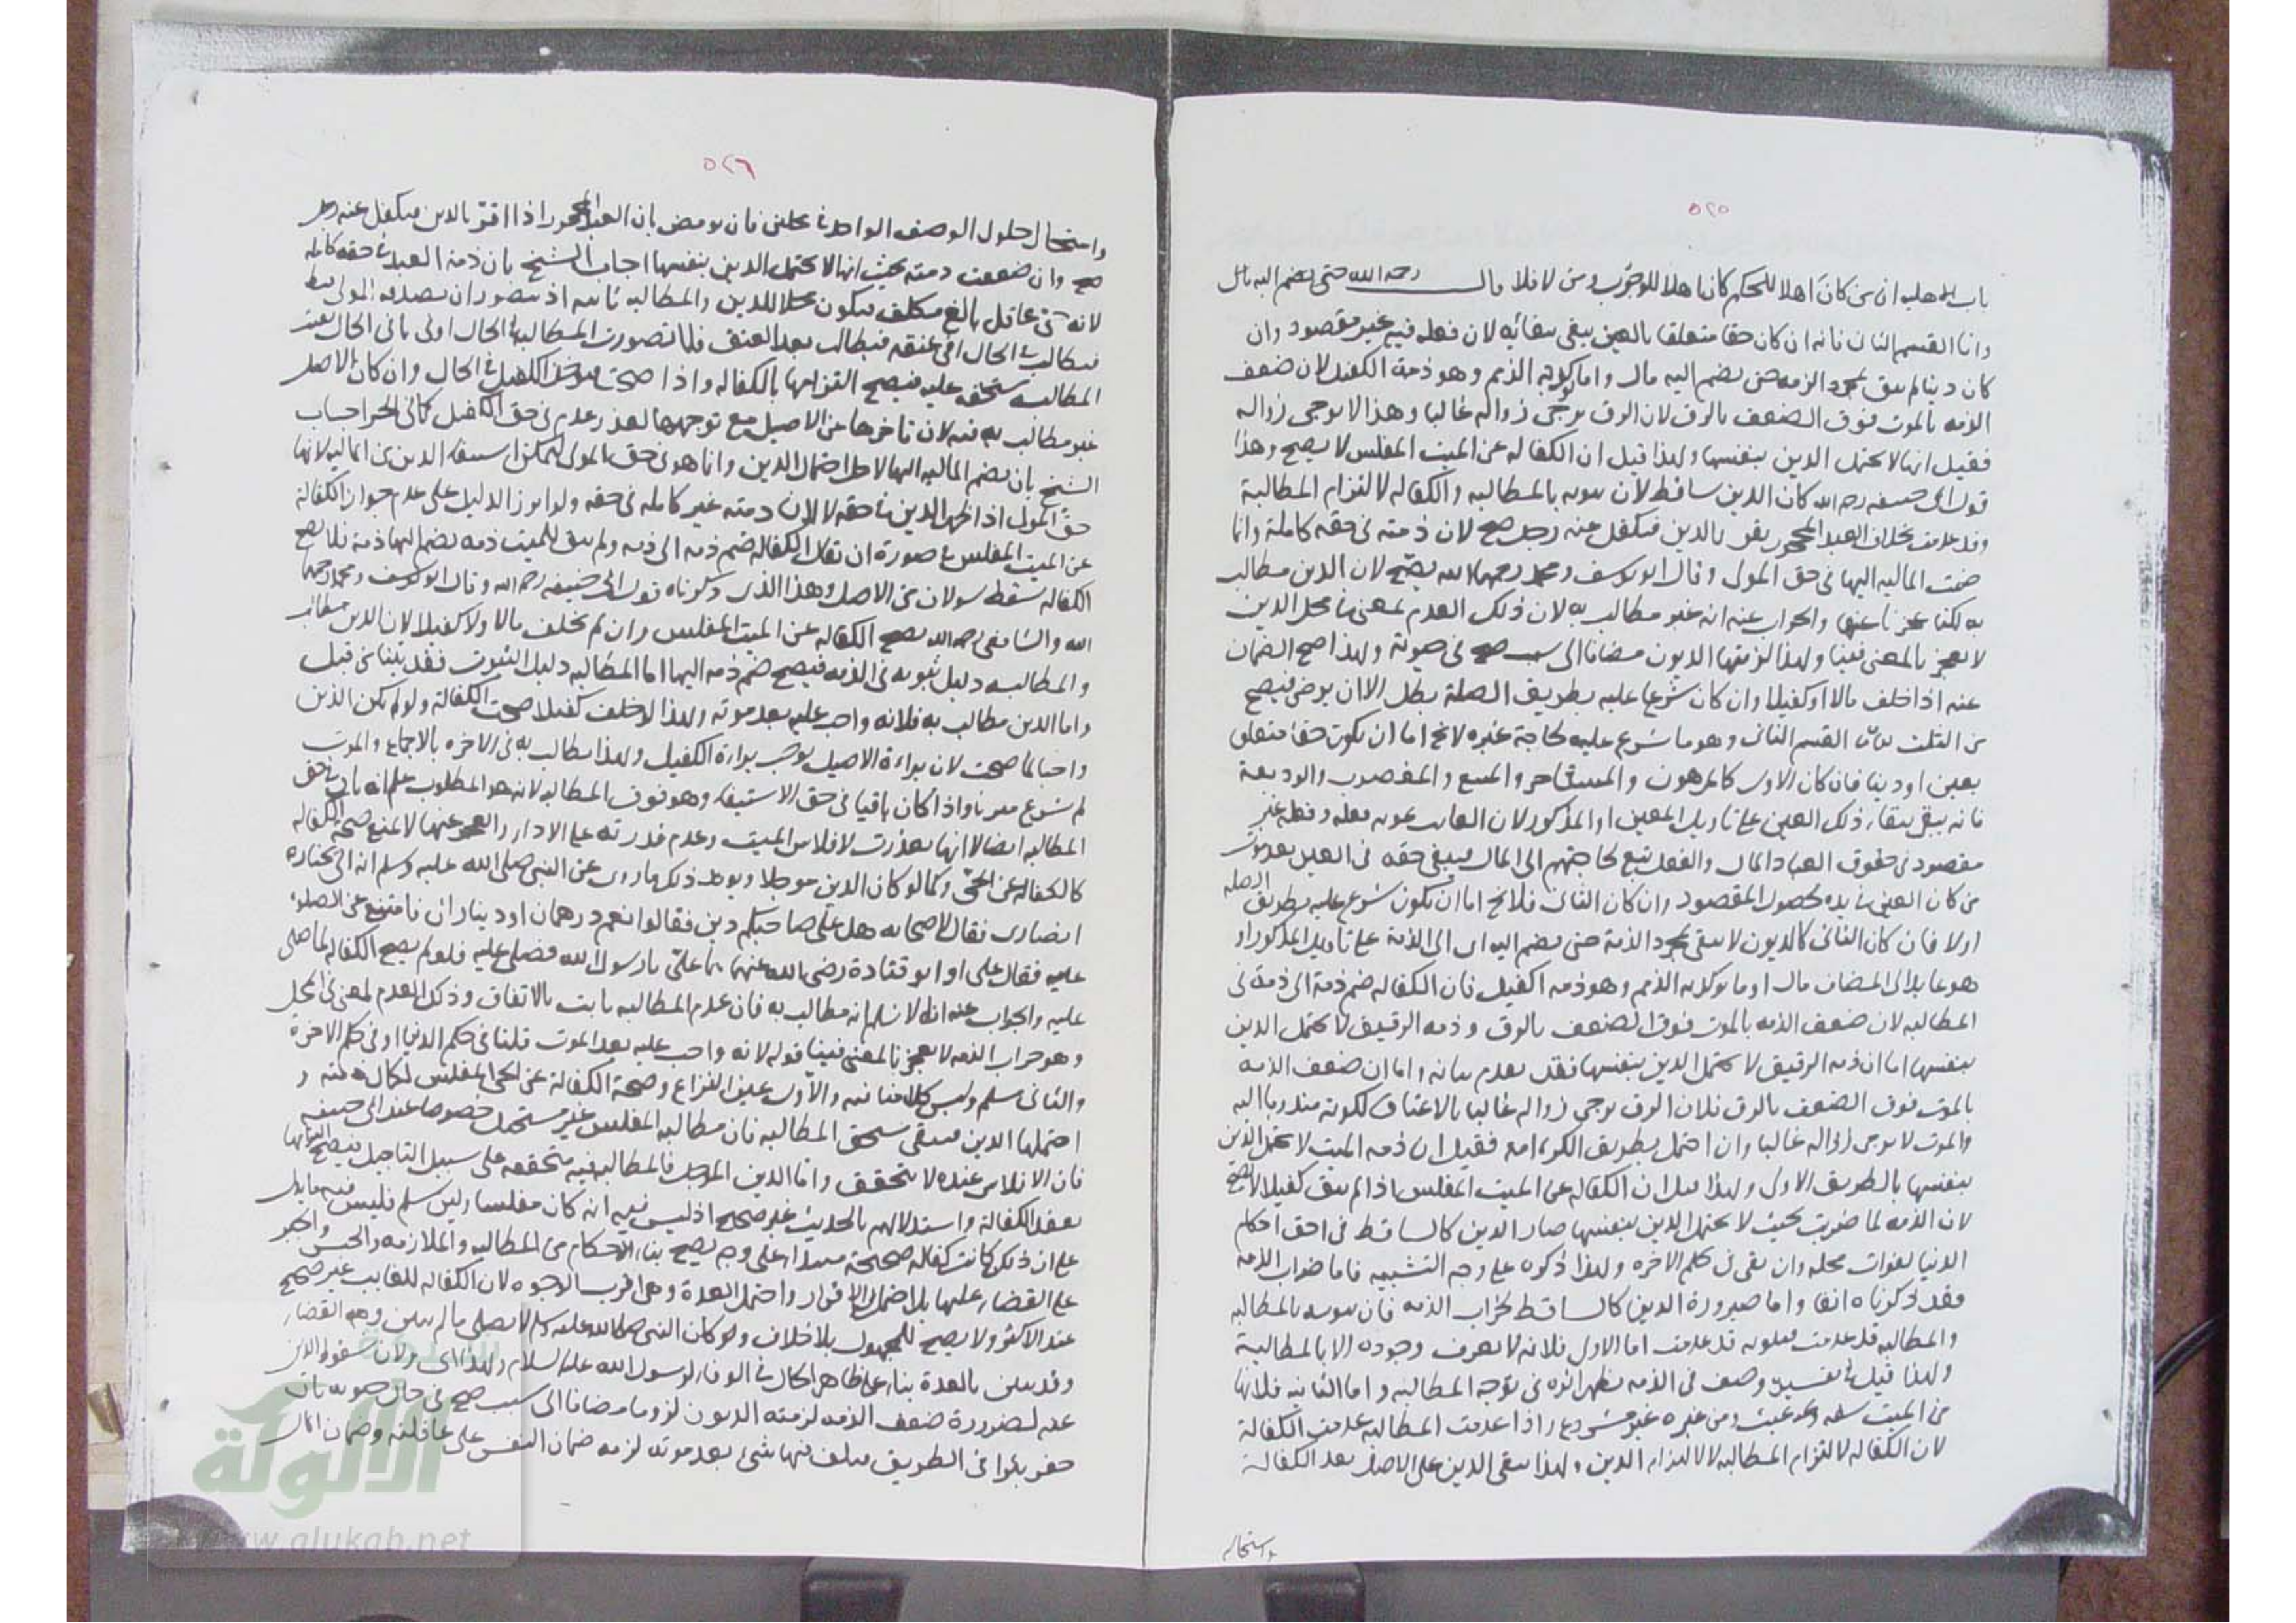 ٥٢٥
باب الاهلية ان من كان اهلا للحكم كان اهلا للوجوب ومن لا فلا قال رحمه الله حتى يضم اليه مال
واما القسم الثانى فانه ان كان حقا متعلقا بالعين يبقى ببقائه لان فعله فيه غير مقصود وان
كان دينا لم يبق بمجرد الذمة حتى يضم اليه مال واما يوكد به الذمم وهو ذمة الكفيل لان ضعف
الذمة بالموت فوق الضعف بالرق لان الرق يرجى زواله غالبا وهذا لا يرجى زواله
فقيل انها لا تحتمل الدين بنفسها ولهذا قيل ان الكفالة عن الميت المفلس لا يصح وهذا
قول ابى حنيفه رحمه الله كان الدين ساقط لان ثبوته بالمطالبه والكفاله لالتزام المطالبة
وقد عدمت بخلاف العبد المحجور يقر بالدين فيكفل عنه رجل صح لان ذمته فى حقه كاملة وانما
ضمت المالية اليها فى حق المولى وقال ابو يوسف ومحمد رحمهما الله يصح لان الدين مطالب
به لكنا عجزنا عنها والجواب عنه انه غير مطالب به لان ذلك العدم لمعنى فى محل الدين
لا لعجز بالمعنى فينا ولهذا لزمتها الديون مضافا الى سبب صح فى حيوته ولهذا صح الضمان
عنه اذا خلف مالا او كفيلا وان كان شرعا عليه بطريق الصلة بطل الا ان يوصى فيصح
من الثلث القسم الثانى وهو ما شرع عليه لحاجة غيره لا يخ اما ان يكون حقا متعلق
بعين او دينا فان كان الاول كالمرهون والمستاجر والمبيع والمغصوب والوديعة
فانه يبقى ببقاء ذلك العين على تاويل المعين او المذكور لان الفائت بموته فعله وفعله غير
مقصود فى حقوق العباد المال والفعل تبع لحاجتهم الى المال فيبقى حقه فى العين بعد موت
من كان العين فى يده لحصول المقصود وان كان الثانى فلا يخ اما ان يكون شرع عليه بطريق الصلة
اولا فان كان الثانى كالديون لا يبقى بمجرد الذمة حتى يضم اليه اى الى الذمة على تاويل المذكور او
هو عايد الى المضاف مال او ما يوكد به الذمم وهو ذمه الكفيل فان الكفاله ضم ذمة الى ذمة فى
المطالبه لان ضعف الذمه بالموت فوق الضعف بالرق وذمه الرقيق لا تحتمل الدين
بنفسها اما ان ذمه الرقيق لا تحتمل الدين بنفسها فقد تقدم بيانه واما ان ضعف الذمه
بالموت فوق الضعف بالرق فلان الرق يرجى زواله غالبا بالاعتاق لكونه مندوبا اليه
والموت لا يرجى زواله غالبا وان احتمل بطريق الكرامه فقيل ان ذمه الميت لا تحتمل الدين
بنفسها بالطريق الاولى ولهذا قيل ان الكفاله عن الميت المفلس اذا لم يبق كفيلا لا تصح
لان الذمه لما خربت بحيث لا تحتمل الدين بنفسها صار الدين كالساقط فى احق احكام
الدنيا لفوات محله وان بقى فى حكم الاخره ولهذا ذكره على وجه التشبيه فاما خراب الذمه
فقد ذكرناه انفا واما صيرورة الدين كالساقط بخراب الذمه فان ثبوته بالمطالبه
والمطالبه قد عدمت فثبوته قد عدمت اما الاول فلانه لا يعرف وجوده الا بالمطالبة
ولهذا قيل فى تفسيره وصف فى الذمه يظهر اثره فى توجه المطالبه واما الثانيه فلانها
من الميت سفه وعبث ومن غيره غير مشروع واذا عدمت المطالبه عدمت الكفالة
لان الكفاله لالتزام المطالبه لا لالتزام الدين ولهذا يبقى الدين على الاصيل بعد الكفالة
واستحال
٥٢٦
واستحال حلول الوصف الواحد فى محلين فان نوقض بان العبد المحجور اذا اقر بالدين فيكفل عنه رجل
صح وان ضعفت ذمته بحيث انها لا تحتمل الدين بنفسها اجاب الشيخ بان ذمة العبد فى حقه كامله
لانه حى عاقل بالغ مكلف فيكون محلا للدين والمطالبه ثابته اذ يتصور ان يصدقه المولى
فيطالب فى الحال او عتقه فيطالب بعد العتق فلما تصورت المطالبة فى الحال او فى ثانى الحال
المطالبه مستحق عليه فيصح التزامها بالكفاله واذا صحت يوخذ الكفيل فى الحال وان كان الاصيل
غير مطالب به فيه لان تاخرها عن الاصيل مع توجهها لعذر عدم فى حق الكفيل كما فى الحر اجاب
الشيخ بان ضم الماليه اليها لاحتمال الدين وانما هو فى حق المولى ليمكن استيفاء الدين من الماليه لانها
حق المولى اذا ظهر الدين فى حقه لا لان ذمته غير كامله فى حقه ولو ابرز الدليل على عدم جواز الكفالة
عن الميت المفلس فى صورة ان تقال الكفالة ضم ذمه الى ذمه ولم يبق للميت ذمه يضم اليها ذمة فلا تصح
الكفاله وهذا الذى ذكرناه قول ابى حنيفه رحمه الله وقال ابو يوسف ومحمد رحمهما
الله والشافعى رحمه الله تصح الكفاله عن الميت المفلس وان لم يخلف مالا ولا كفيلا لان الدين مطالب
والمطالبه دليل ثبوته فى الذمه فيصح ضم ذمه اليها اما المطالبه دليل الثبوت فقد بينا من قبل
واما الدين مطالب به فلانه واجب عليه بعد موته ولهذا لو خلف كفيلا صحت الكفالة ولو لم يكن الدين
واجبا لما صحت لان براءة الاصيل يوجب براءة الكفيل ولهذا يطالب به فى الاخره بالاجماع والموت
لم يشرع مبريا واذا كان باقيا فى حق الاستيفاء وهو فوق المطالبه لانه هو المطلوب علم انه باق فى حق
المطالبه ايضا الا انها تعذرت لافلاس الميت وعدم قدرته على الاداء والعجز عنها لا يمنع صحة الكفاله
كالكفاله عن الحى وكما لو كان الدين موجلا ويويد ذلك ما روى عن النبى صلى الله عليه وسلم انه اتى بجنازه
انصارى فقال لاصحابه هل على صاحبكم دين فقالوا نعم درهمان او ديناران فامتنع عن الصلوة
عليه فقال على او ابو قتادة رضى الله عنهما هما على يا رسول الله فصلى عليه فلو لم يصح الكفاله لما صلى
عليه والجواب عنه انا لا نسلم انه مطالب به فان عدم المطالبه ثابت بالاتفاق وذلك العدم لمعنى فى المحل
وهو خراب الذمه لا لعجز بالمعنى فينا قوله لانه واجب عليه بعد الموت قلنا فى حكم الدنيا او فى حكم الاخرة
والثانى مسلم وليس كلامنا فيه والاول عين النزاع وصحة الكفالة عن الحى المفلس لكمال ذمته و
احتمالها الدين فيبقى مستحق المطالبه فان مطالبه المفلس غير مستحيل خصوصا عند ابى حنيفه
فان الافلاس عنده لا يتحقق واما الدين الموجل فالمطالبة فيه متحققه على سبيل التاجيل فيصح التزامها
بعقد الكفالة واستدلالهم بالحديث غير صحيح اذ ليس فيه انه كان مفلسا ولئن سلم فليس فيه ما يدل
على ان ذلك كانت كفالة صحيحة على وجه يصح بناء الاحكام من المطالبه والملازمه والحبس والجبر
على القضاء عليها بل احتمل الاقرار واحتمل العدة وهى اقرب الوجوه لان الكفاله للغايب غير صحيح
عند الاكثر ولا يصح للمجهول بلا خلاف وكان النبى صلى الله عليه وسلم لا يصلى ما لم يتبين وجه القضاء
وقد تبين بالعدة بناء على ظاهر الحال فى الوفاء لرسول الله عليه السلام ولهذا اى ولان سقوط الدين
عنه لضرورة ضعف الذمه لزمته الديون لزوما مضافا الى سبب صح فى حال حيوته بان
حفر بئرا فى الطريق فتلف فيها شىء بعد موته لزمه ضمان النفس على عاقلته وضمان المال
الألوكة
www.alukah.net